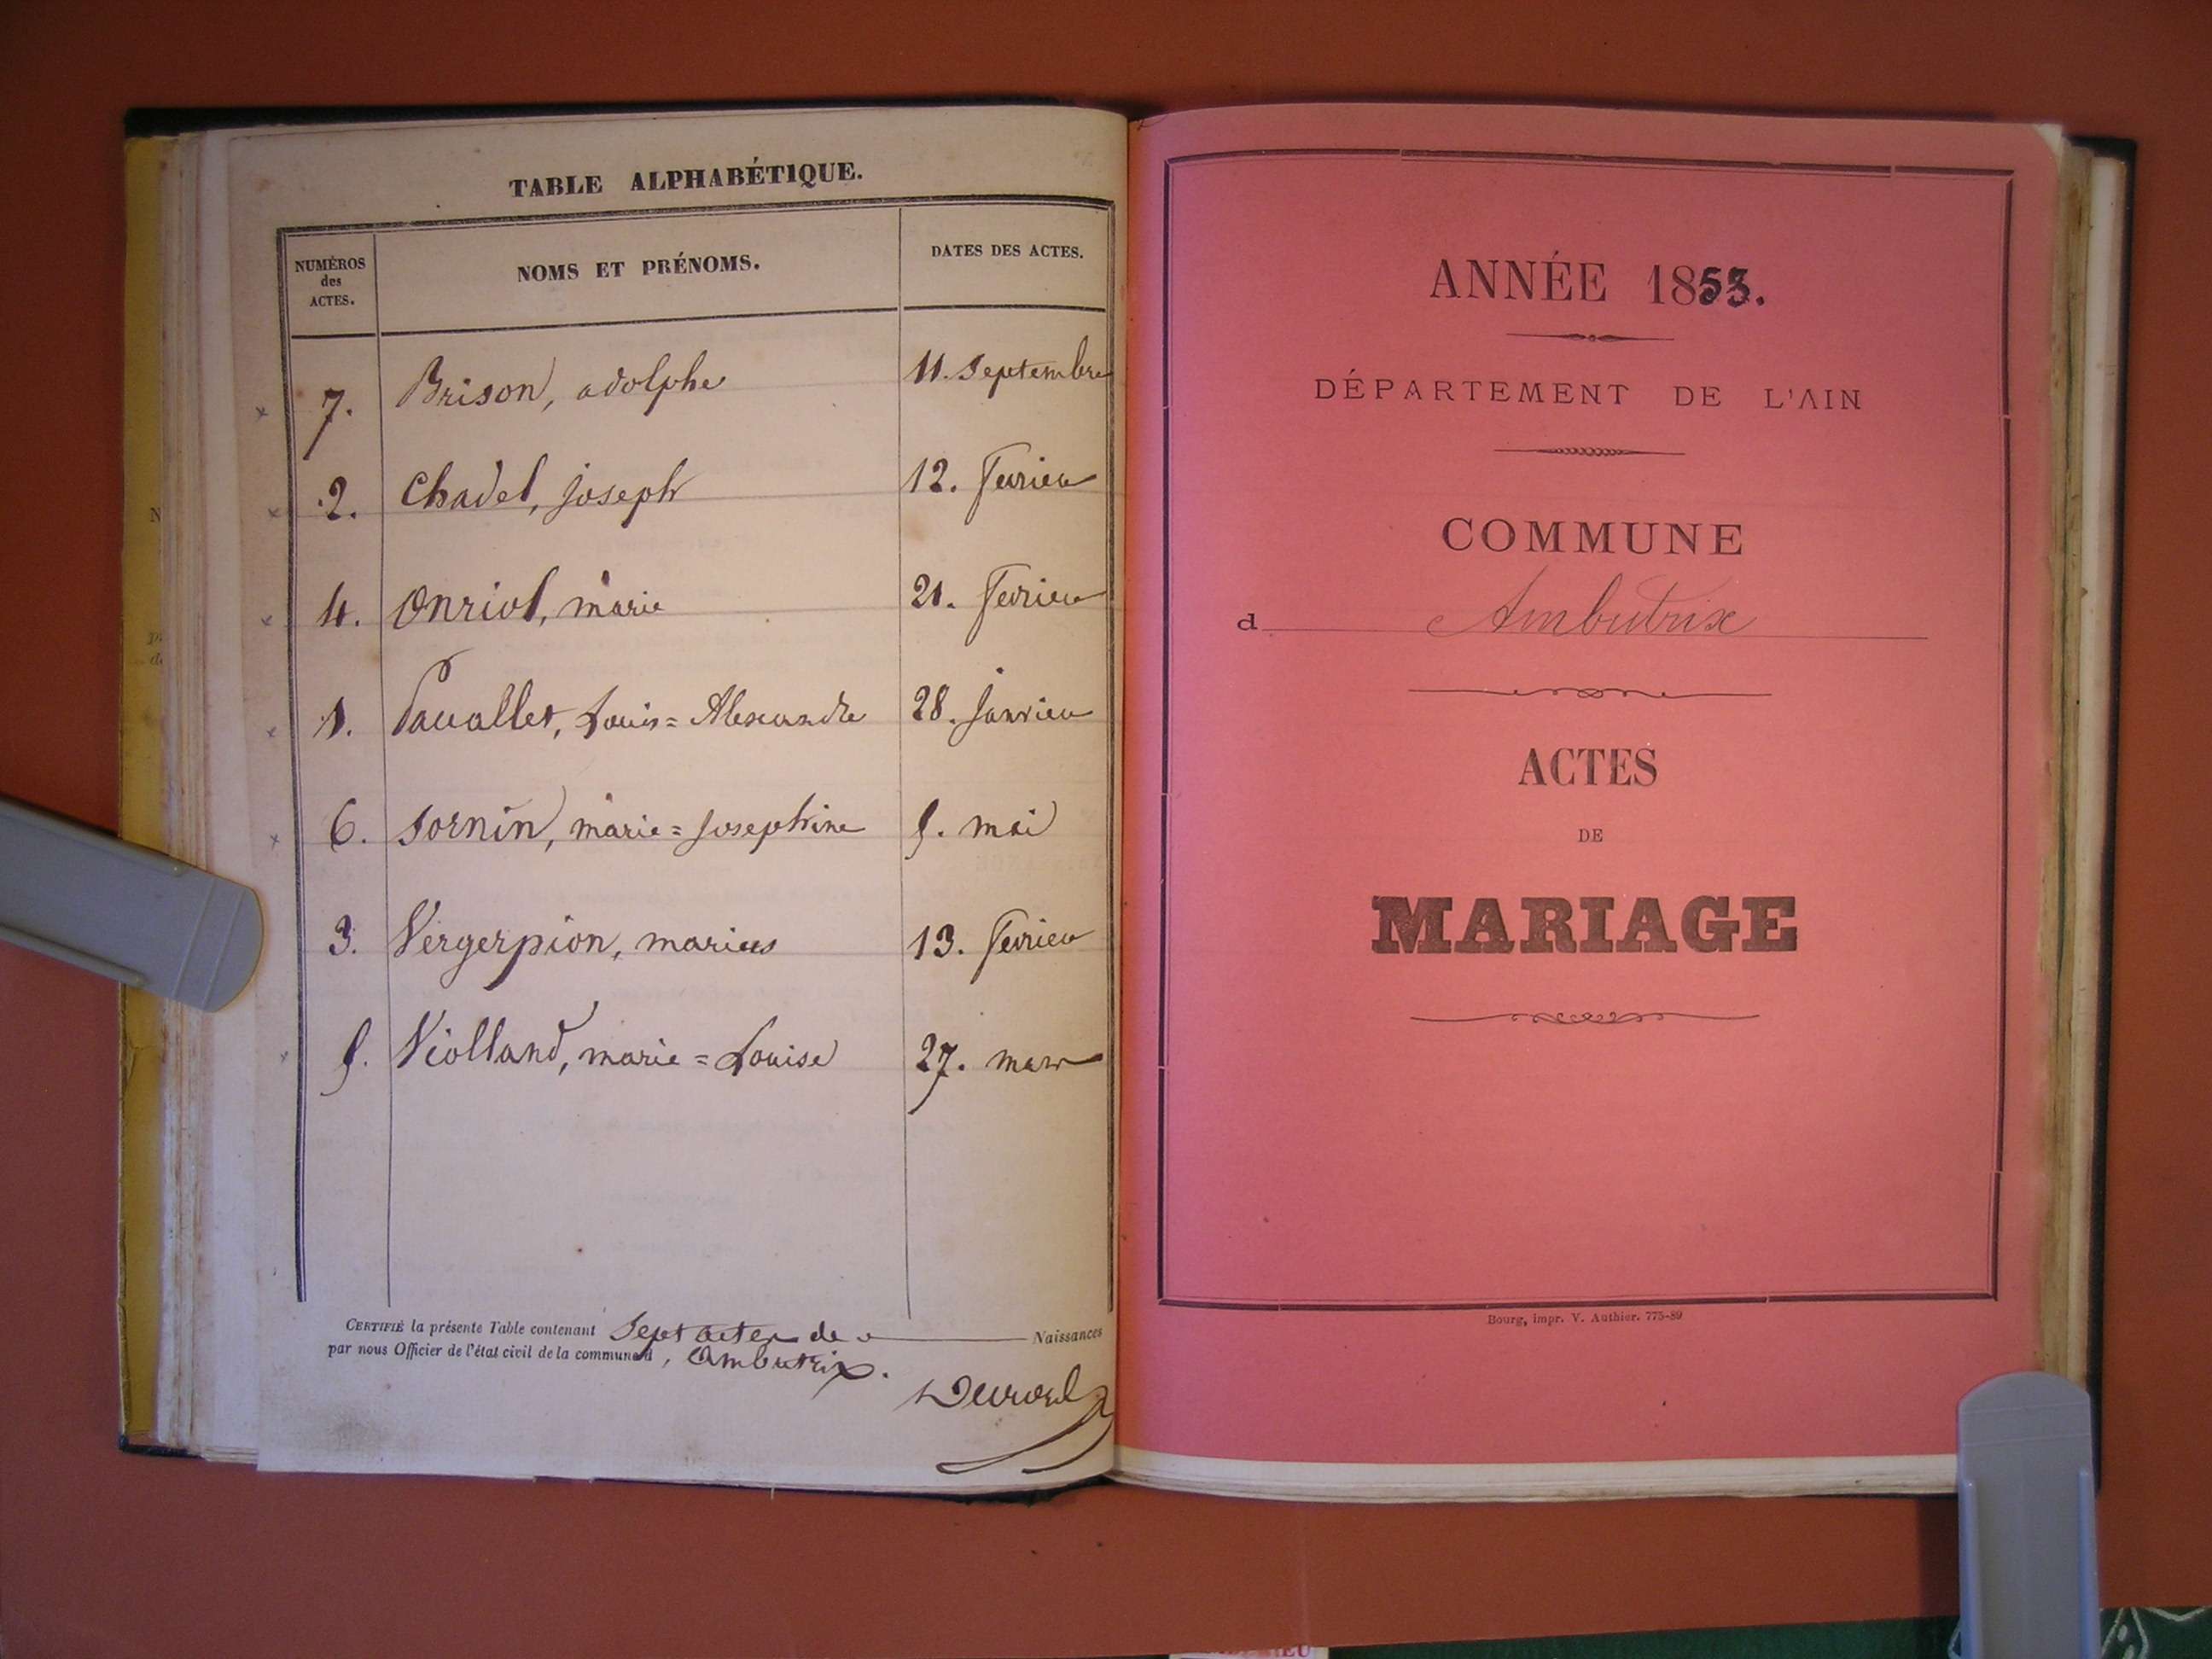 TABLE ALPHABÉTIQUE.
NUMÉROS des ACTES. NOMS ET PRÉNOMS. DATES DES ACTES.
7. Brison, adolphe 11. Septembre
2. Chadel, joseph 12. fevrier
4. Onriol, marie 21. fevrier
1. Louis = Alexandre 28. Janvier
6. Sornin, marie = Josephine 5. mai
3. Vergerpion, marius 13. fevrier
5. Violland, marie = Louise 27. mars
CERTIFIÉ la présente Table contenant Sept actes de Naissances
par nous Officier de l'état civil de la commune d, Ambutrix.
ANNÉE 1853.
DÉPARTEMENT DE L'AIN
COMMUNE
d Ambutrix
ACTES
DE
MARIAGE
Bourg, impr. V. Authier. 775-89